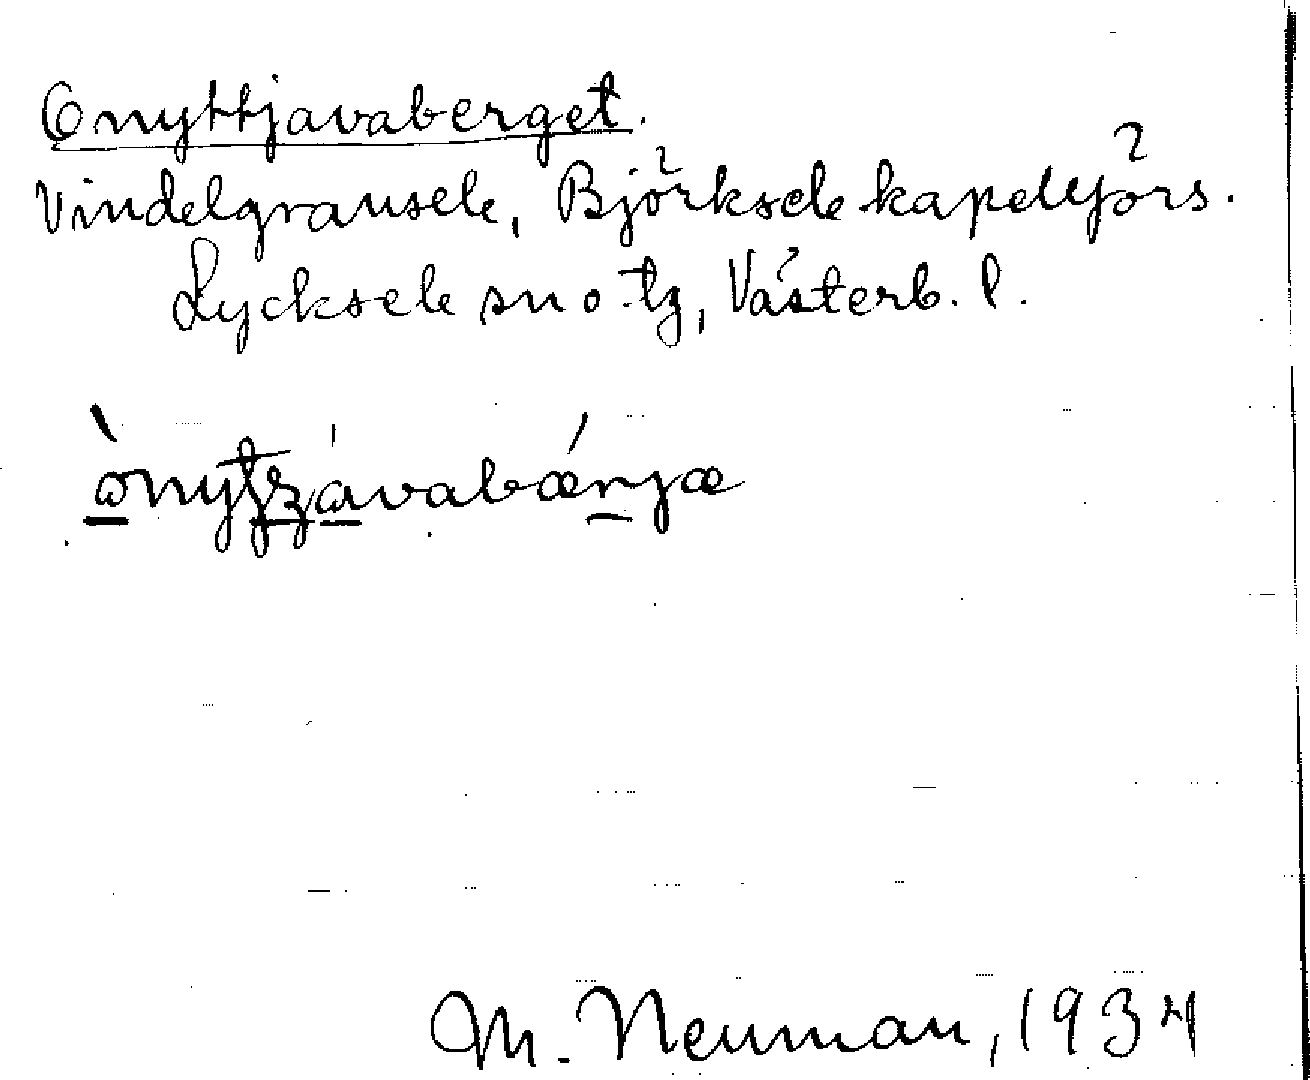 Onyttjavaberget.
Vindelgransele, Björksele kapellförs.
Lycksele sn o. tg, Västerb. l.
M. Neuman, 1934